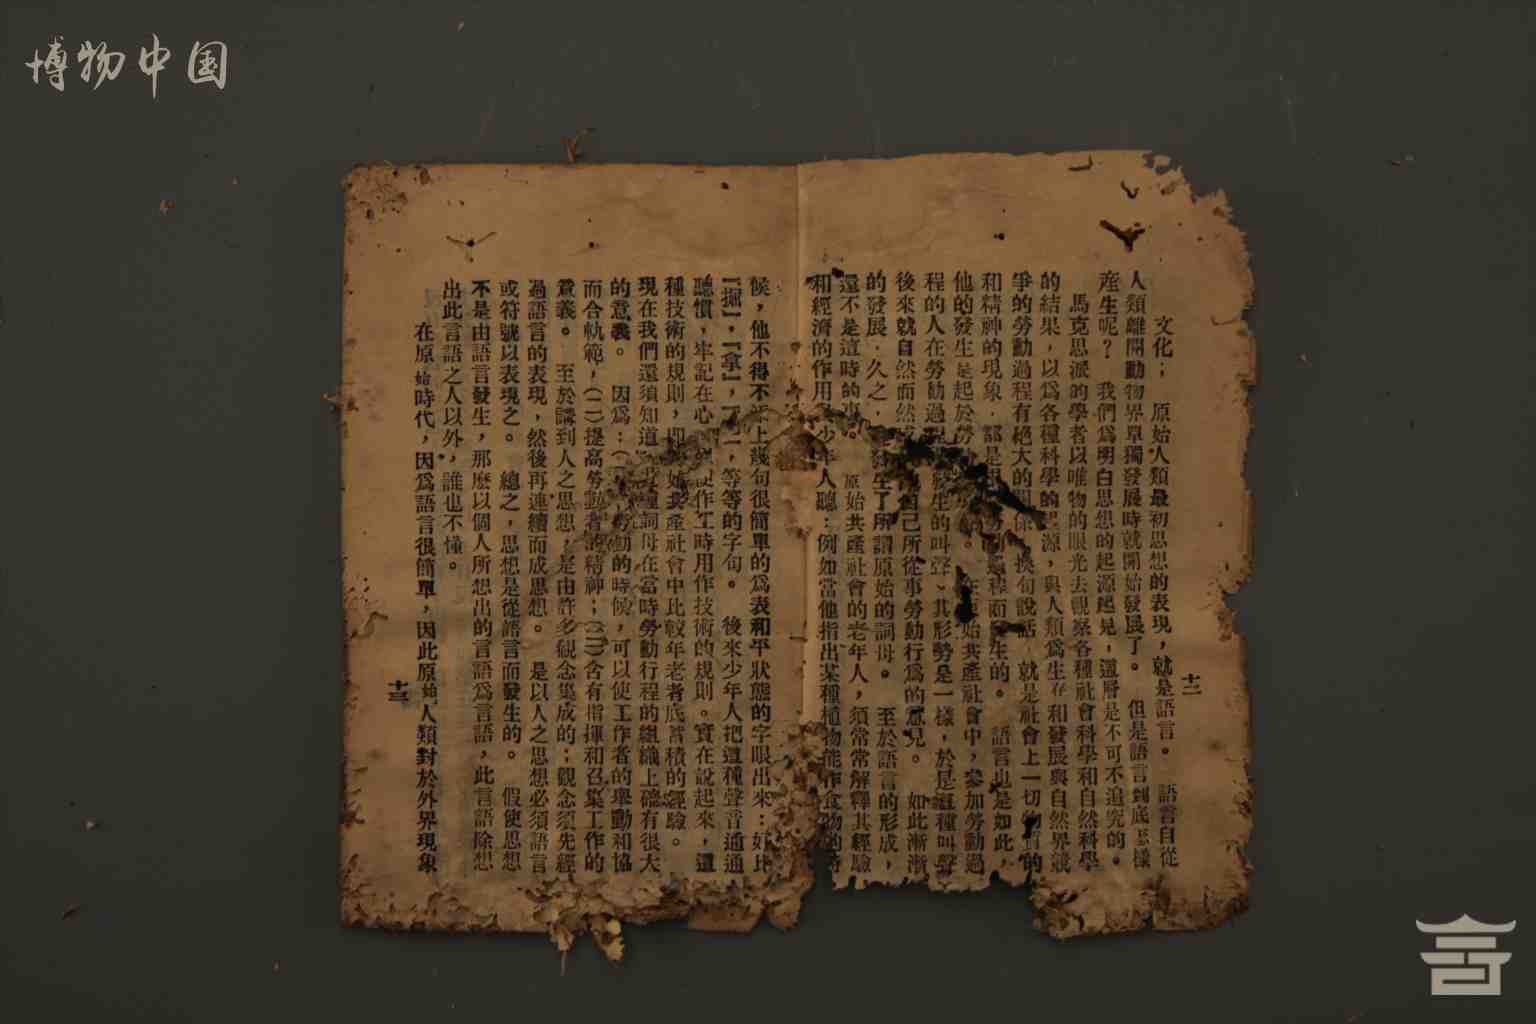 博物中国
十二
文化；原始人類最初思想的表現，就是語言。語言自從
人類離開動物界單獨發展時就開始發展了。但是語言到底怎樣
產生呢？我們爲明白思想的起源起見，這層是不可不追究的。
馬克思派的學者以唯物的眼光去觀察各種社會科學和自然科學
的結果，以爲各種科學的起源，與人類爲生存和發展與自然界競
爭的勞動過程有絕大的關係。換句說話，就是社會上一切物質的
和精神的現象，都是勞動過程而發生的。語言也是如此，
他的發生是起於勞。在原始共產社會中，參加勞動過
程的人在勞動過程發生的叫聲，其形勢是一樣，於是這種叫聲
後來就自然而然自己所從事勞動行爲的意見。如此漸漸
的發展，久之，發生了所謂原始的詞母。至於語言的形成，
還不是這時的事。原始共產社會的老年人，須常常解釋其經驗
和經濟的作用少年人聽：例如當他指出某種植物能作食物的時
候，他不得不添上幾句很簡單的爲表和平狀態的字眼出來：好比
『掘』，『拿』，等等的字句。後來少年人把這種聲音通通
聽慣，牢記在心，作工時用作技術的規則。實在說起來，這
種技術的規則，即原始共產社會中比較年老者底蓄積的經驗。
現在我們還須知道，這種詞母在當時勞動行程的組織上確有很大
的意義。因爲：勞動的時候，可以使工作者的舉動和協
而合軌範，（二）提高勞動者的精神；（三）含有指揮和召集工作的
意義。至於講到人之思想，是由許多觀念集成的；觀念須先經
過語言的表現，然後再連續而成思想。是以人之思想必須語言
或符號以表現之。總之，思想是從語言而發生的。假使思想
不是由語言發生，那麽以個人所想出的言語爲言語，此言語除想
出此言語之人以外，誰也不懂。
在原始時代，因爲語言很簡單，因此原始人類對於外界現象
十三